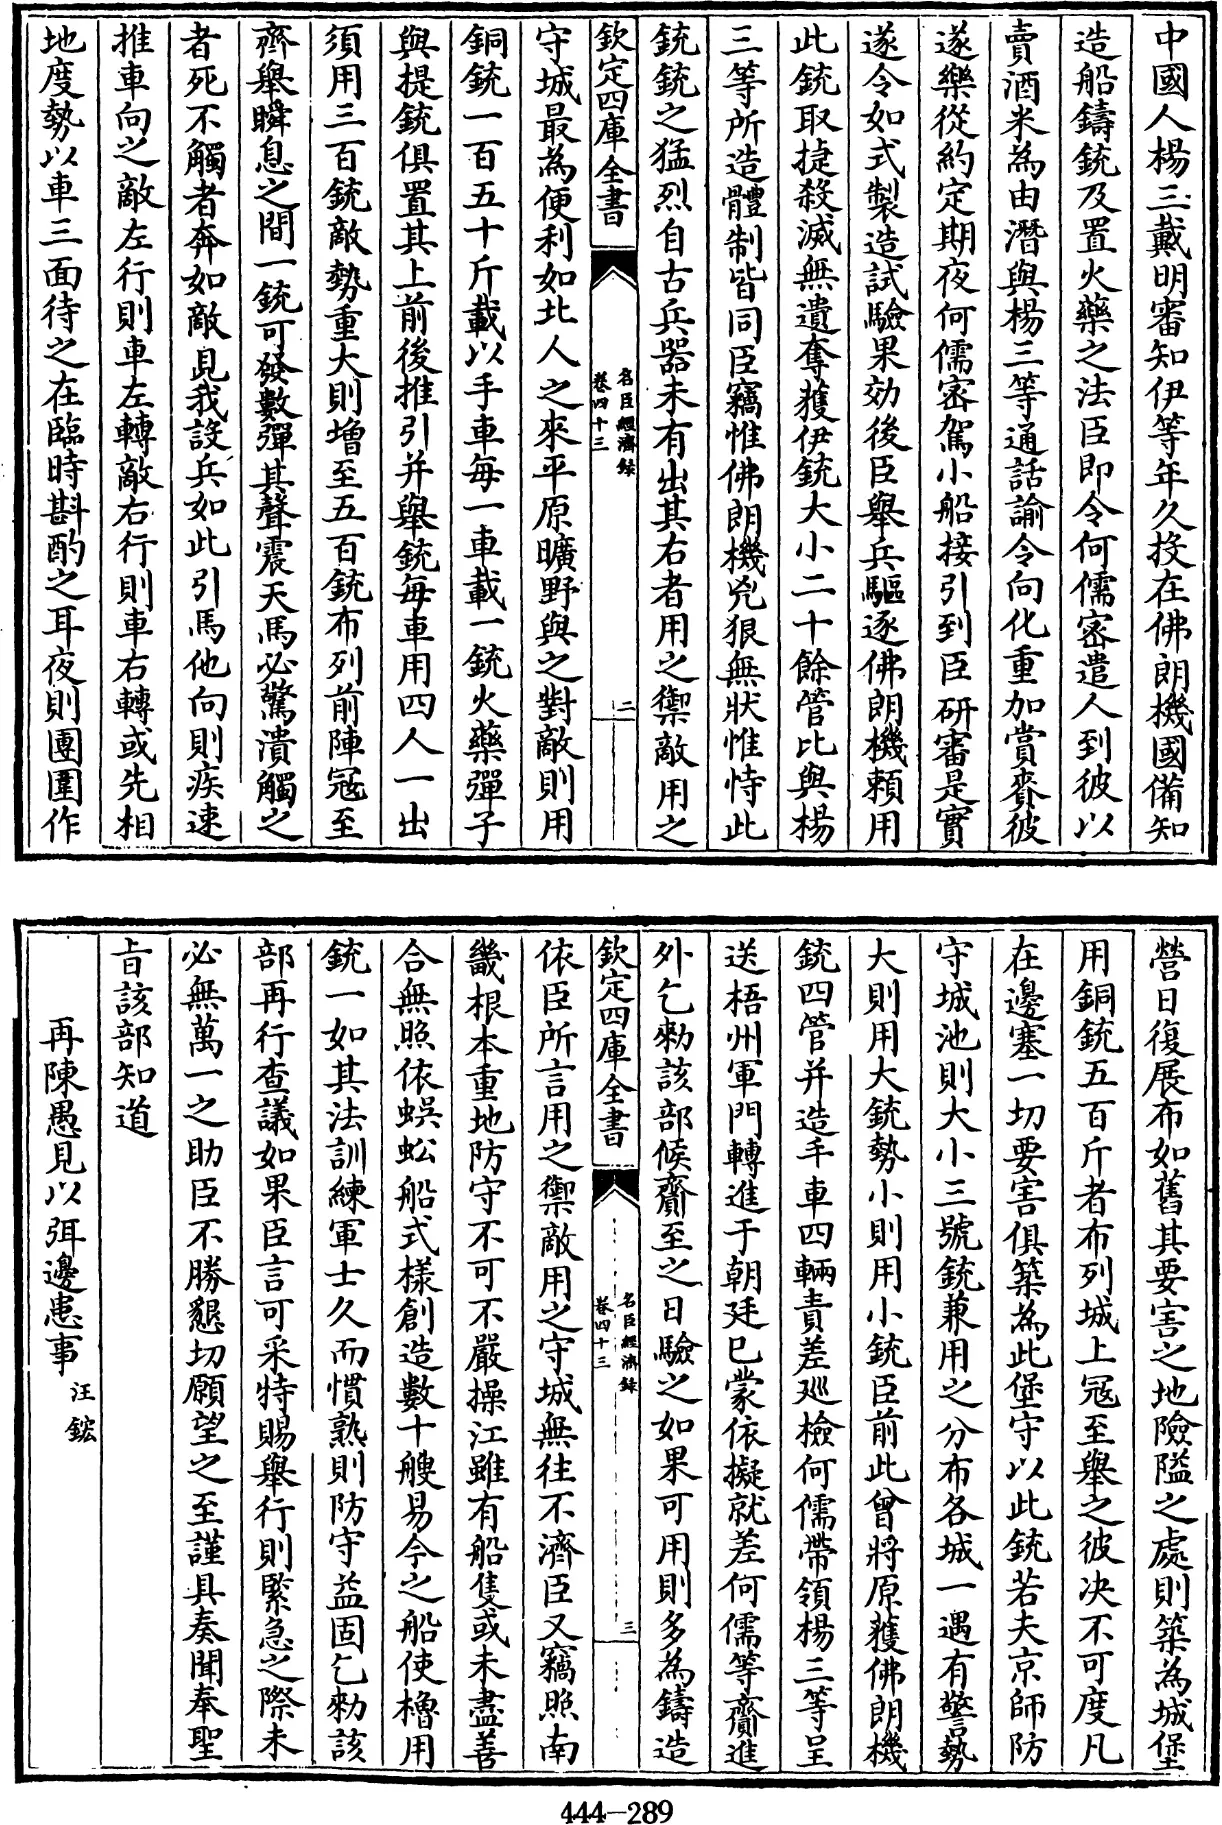 中國人楊三戴明審知伊等年久投在佛朗機國備知
造船鑄銃及置火藥之法臣即令何儒密遣人到彼以
賣酒米為由潛與楊三等通話諭令向化重加賞賚彼
遂樂從約定期夜何儒密駕小船接引到臣研審是實
遂令如式製造試驗果効後臣舉兵驅逐佛朗機頼用
此銃取捷殺滅無遺奪獲伊銃大小二十餘管比與楊
三等所造體制皆同臣竊惟佛朗機兇狠無狀惟恃此
銃銃之猛烈自古兵器未有出其右者用之禦敵用之
欽定四庫全書
名臣經濟錄
卷四十三
二
守城最為便利如北人之來平原曠野與之對敵則用
銅銃一百五十斤載以手車每一車載一銃火藥彈子
與提銃俱置其上前後推引并舉銃每車用四人一出
須用三百銃敵勢重大則増至五百銃布列前陣冦至
齊舉瞬息之間一銃可發數彈其聲震天馬必驚潰觸之
者死不觸者奔如敵見我設兵如此引馬他向則疾速
推車向之敵左行則車左轉敵右行則車右轉或先相
地度勢以車三面待之在臨時斟酌之耳夜則團圍作
營日復展布如舊其要害之地險隘之處則築為城堡
用銅銃五百斤者布列城上冦至舉之彼决不可度凡
在邊塞一切要害俱築為此堡守以此銃若夫京師防
守城池則大小三號銃兼用之分布各城一遇有警勢
大則用大銃勢小則用小銃臣前此曾將原獲佛朗機
銃四管并造手車四輛責差廵檢何儒帶領楊三等呈
送梧州軍門轉進于朝廷已蒙依擬就差何儒等齎進
外乞勑該部候齎至之日驗之如果可用則多為鑄造
欽定四庫全書
名臣經濟錄
卷四十三
三
依臣所言用之禦敵用之守城無往不濟臣又竊照南
畿根本重地防守不可不嚴操江雖有船隻或未盡善
合無照依蜈蚣船式樣創造數十艘易今之船使櫓用
銃一如其法訓練軍士久而慣熟則防守益固乞勑該
部再行查議如果臣言可采特賜舉行則緊急之際未
必無萬一之助臣不勝懇切願望之至謹具奏聞奉聖
㫖該部知道
再陳愚見以弭邊患事 汪鋐
444-289